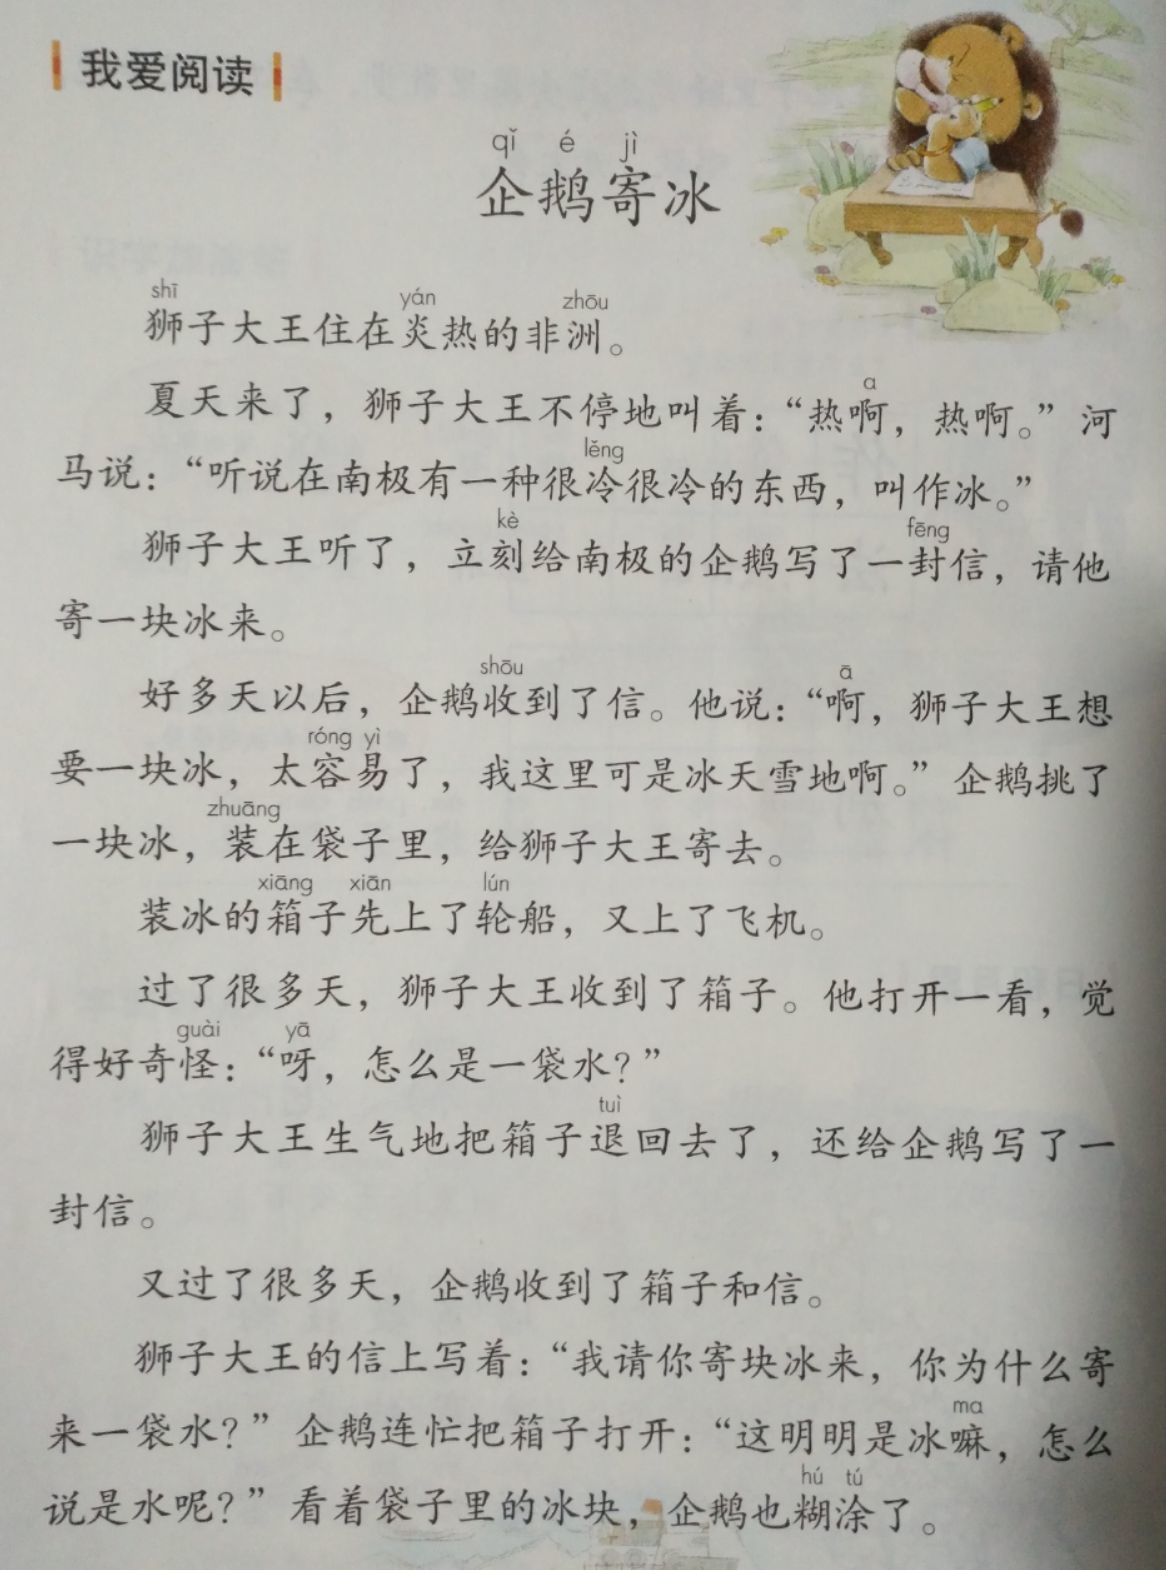 我爱阅读
qǐ é jì
企鹅寄冰
shī yán zhōu
狮子大王住在炎热的非洲。
ɑ
夏天来了，狮子大王不停地叫着：“热啊，热啊。”河
lěng
马说：“听说在南极有一种很冷很冷的东西，叫作冰。”
kè fēng
狮子大王听了，立刻给南极的企鹅写了一封信，请他
寄一块冰来。
shōu ā
好多天以后，企鹅收到了信。他说：“啊，狮子大王想
róng yì
要一块冰，太容易了，我这里可是冰天雪地啊。”企鹅挑了
zhuāng
一块冰，装在袋子里，给狮子大王寄去。
xiāng xiān lún
装冰的箱子先上了轮船，又上了飞机。
过了很多天，狮子大王收到了箱子。他打开一看，觉
guài yā
得好奇怪：“呀，怎么是一袋水？”
tuì
狮子大王生气地把箱子退回去了，还给企鹅写了一
封信。
又过了很多天，企鹅收到了箱子和信。
狮子大王的信上写着：“我请你寄块冰来，你为什么寄
ma
来一袋水？”企鹅连忙把箱子打开：“这明明是冰嘛，怎么
hú tú
说是水呢？”看着袋子里的冰块，企鹅也糊涂了。